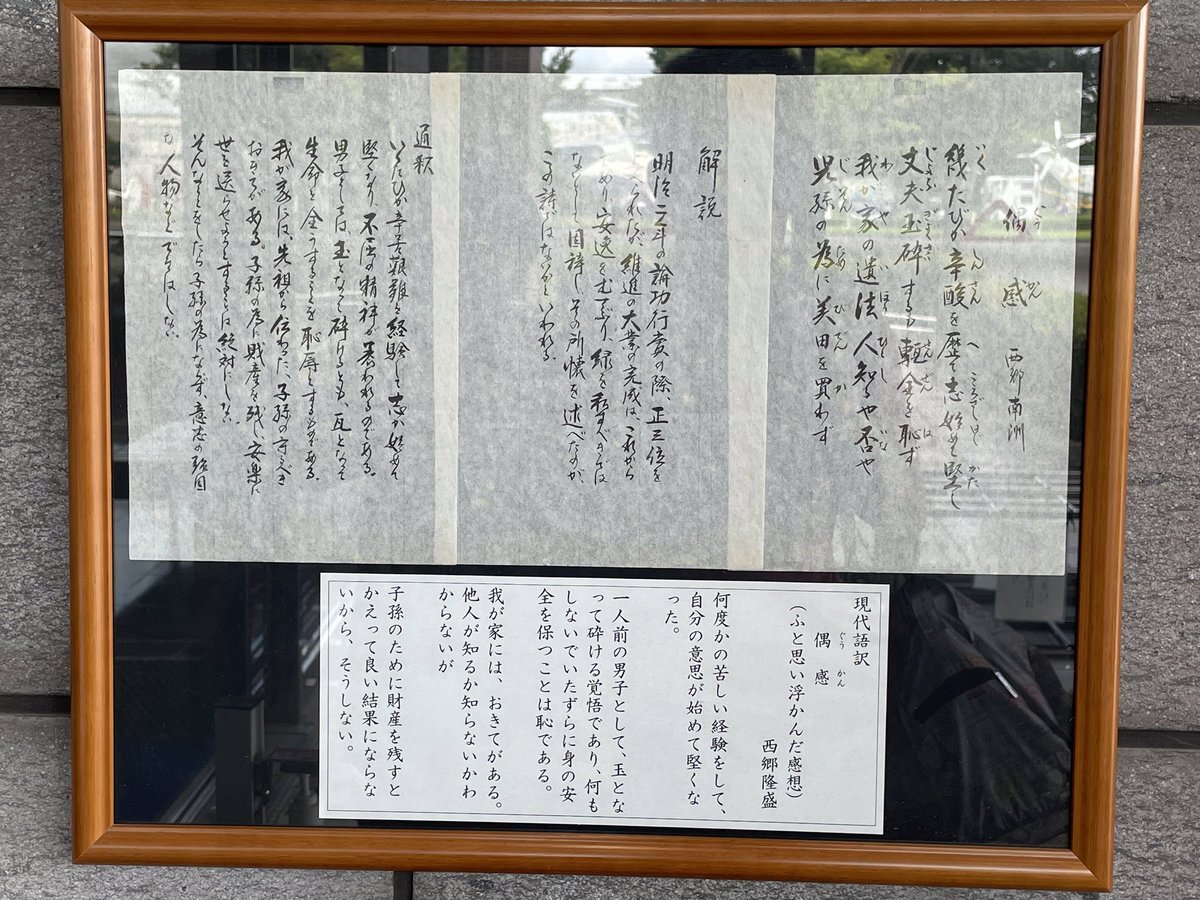 偶感
西郷南洲
幾たびか辛酸を歴て志始めて堅し
丈夫玉砕するも甎全を恥ず
我が家の遺法人知るや否や
児孫の為に美田を買わず
解説
明治二年の論功行賞の際、正三位を
維進の大業の完成は、これから
であり安逸をむさぼり、禄を
などとして固辞し、その所懐を述べたのが、
この詩ではないかといわれる。
通釈
いくたびか辛苦艱難を経験して志が始めて
堅くなり、不屈の精神が養われるのである。
男子としては、玉となって砕けるとも、瓦となって
生命を全うすることを恥辱とするものである。
我が家には、先祖から伝わった、子孫の守るべき
おきてがある。子孫の為に財産を残し、安楽に
世を送らせようとすることは絶対にしない。
そんなことをしたら子孫の為にならず、意志の
な人物など できはしない。
現代語訳
偶感
ぐうかん
(ふと思い浮かんだ感想)
西郷隆盛
何度かの苦しい経験をして、
自分の意思が始めて堅くな
った。
一人前の男子として、玉とな
って砕ける覚悟であり、何も
しないでいたずらに身の安
全を保つことは恥である。
我が家には、おきてがある。
他人が知るか知らないかわ
からないが
子孫のために財産を残すと
かえって良い結果にならな
いから、そうしない。